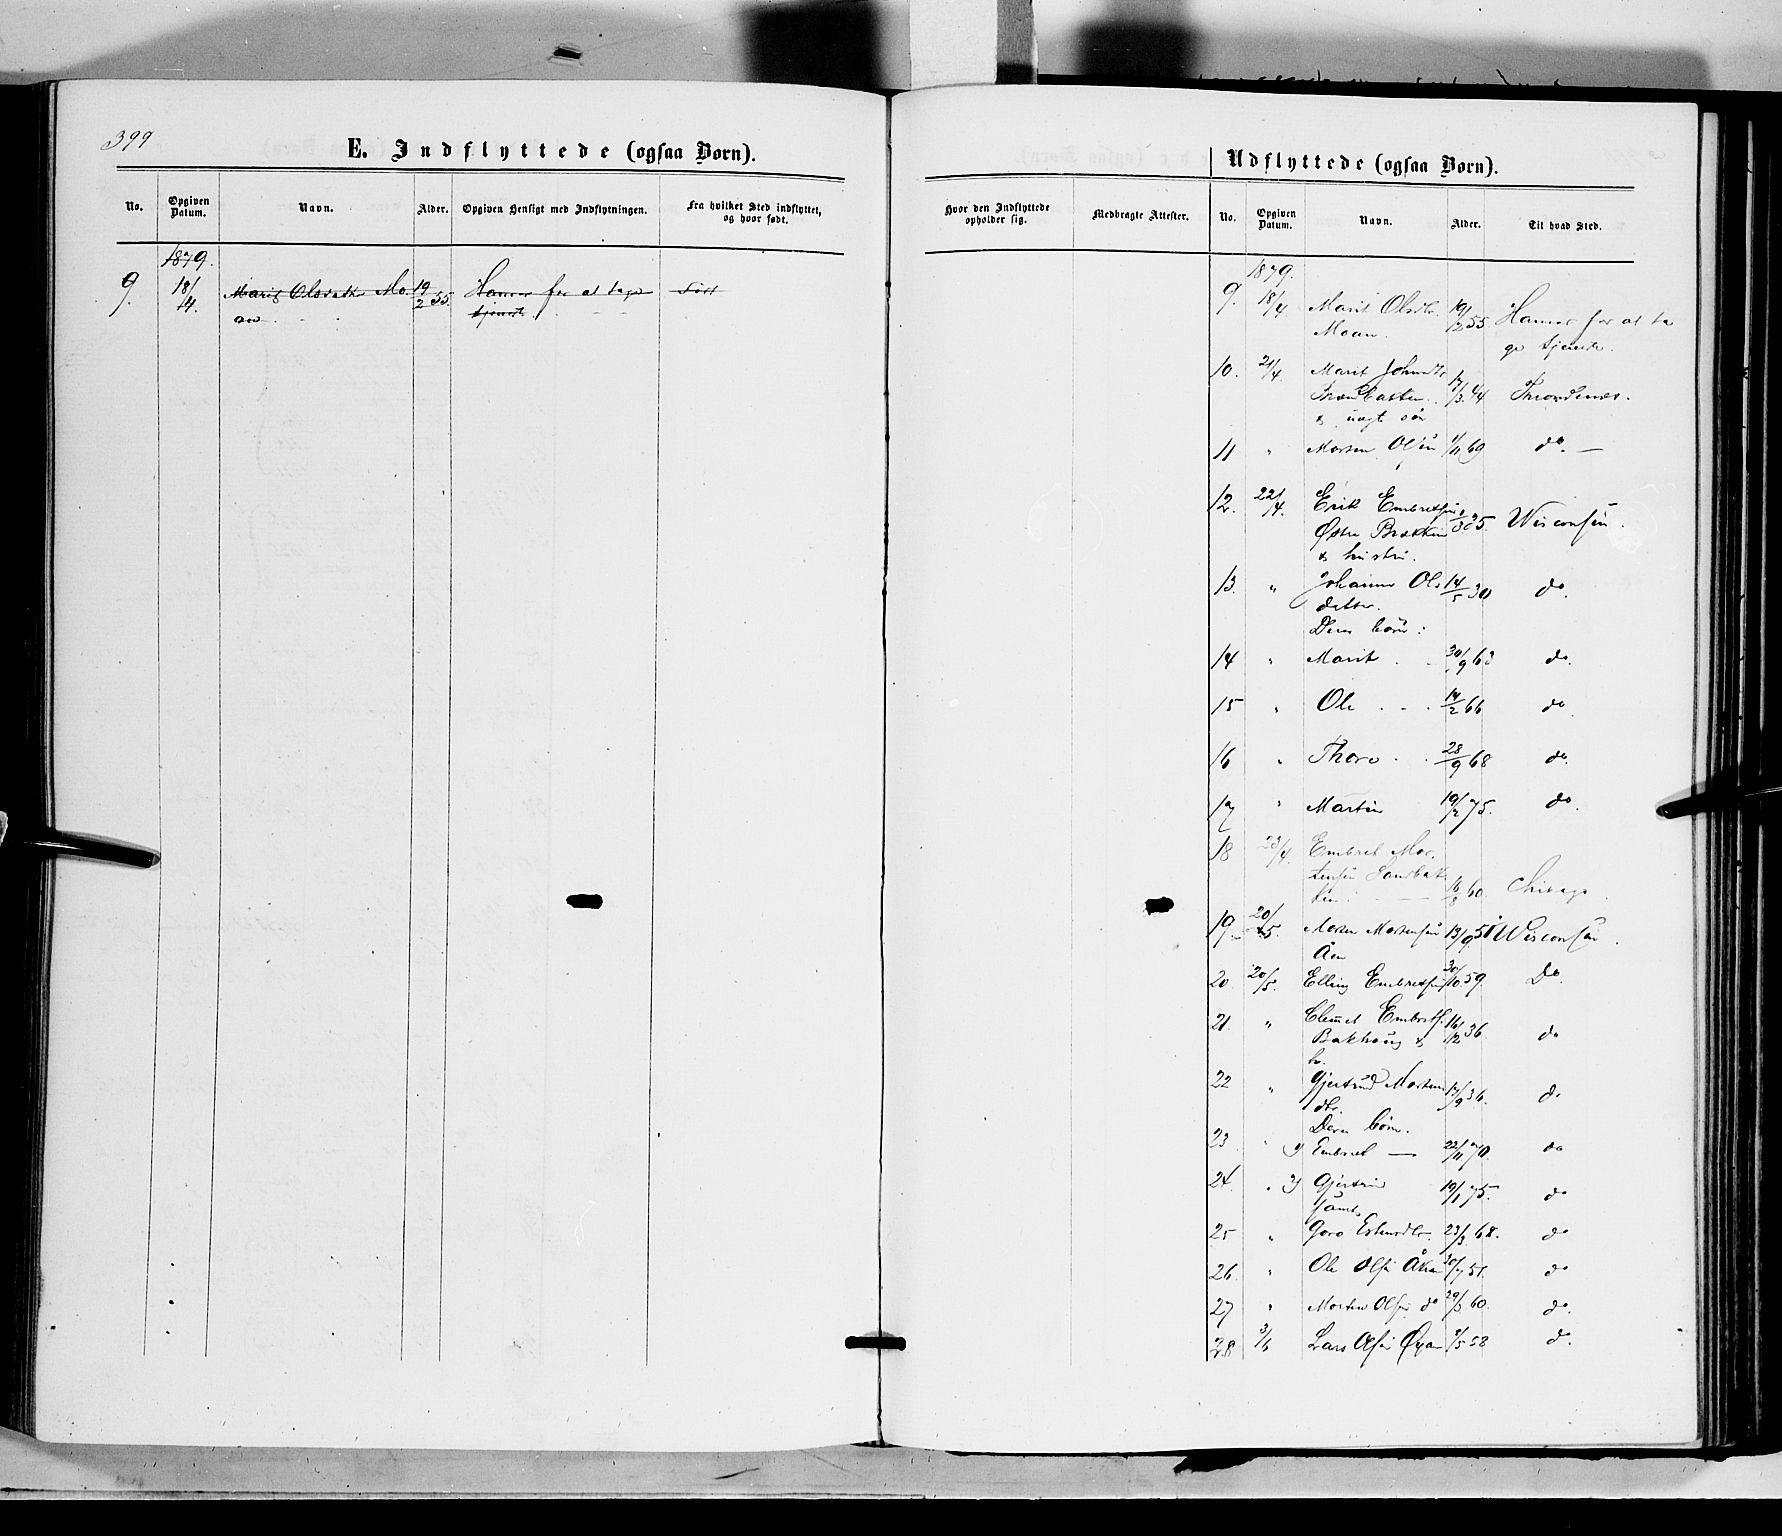 399
E. Indflyttede (ogsaa Børn).
No. Opgiven Datum. Navn. Alder. Opgiven Hensigt med Indflytningen. Fra hvilket Sted indflyttet, og hvor født.
1879.
9. 18/4. Marit Olsdatter Mo 19/2 55. Hamar for at tage
aen tjeneste
Udflyttede (ogsaa Børn).
Hvor den Indflyttede opholder sig. Medbragte Attester. No. Opgiven Datum. Navn. Alder. Til hvad Sted.
1879.
9. 18/4 Marit Olsdtr. 19/2 55. Hamar for at ta
Moan. ge tjeneste.
10. 21/4. Marit Johnsdtr
17/3. 44 Throndenæs.
& uægte søn
11 " Morten Olsen 1/11 69 do. —
12. 22/4. Erik Embretsen
Østre Brækken 35. Wisconsin.
& hustru.
13. " Johanna Ols 14/5 30 do.
datter.
Deres børn:
14 " Marit 30/9 63 do.
15 " Ole 14/2 66 do
16 " Thore 28/9 68 do.
17 " Martin 19/2 75. do.
18 23/4. Embret Mor
tensen Sandbak
ken 60. Chicago.
19. 20/5. Morten Mortensen 13/9 51 Wisconsin.
Aen
20. 20/5. Elling Embretsen 30/10 59. Do.
21. " Clemet Embrets. 16/12 36. do
Bakhaug &
h.
22 " Gjertrud Mortens 17/9 36. do
dtr.
Deres børn.
23 " 1) Embret — 22/11 70. do
24. " 2) Gjertrud 19/1 75. do
samt
25 " Goro Estensdtr. 23/3. 68. do
26. " Ole Olsen 51. do
27 " Morten Olsen do 60. do.
28 3/6 Lars Olsen Øyan 58 do.